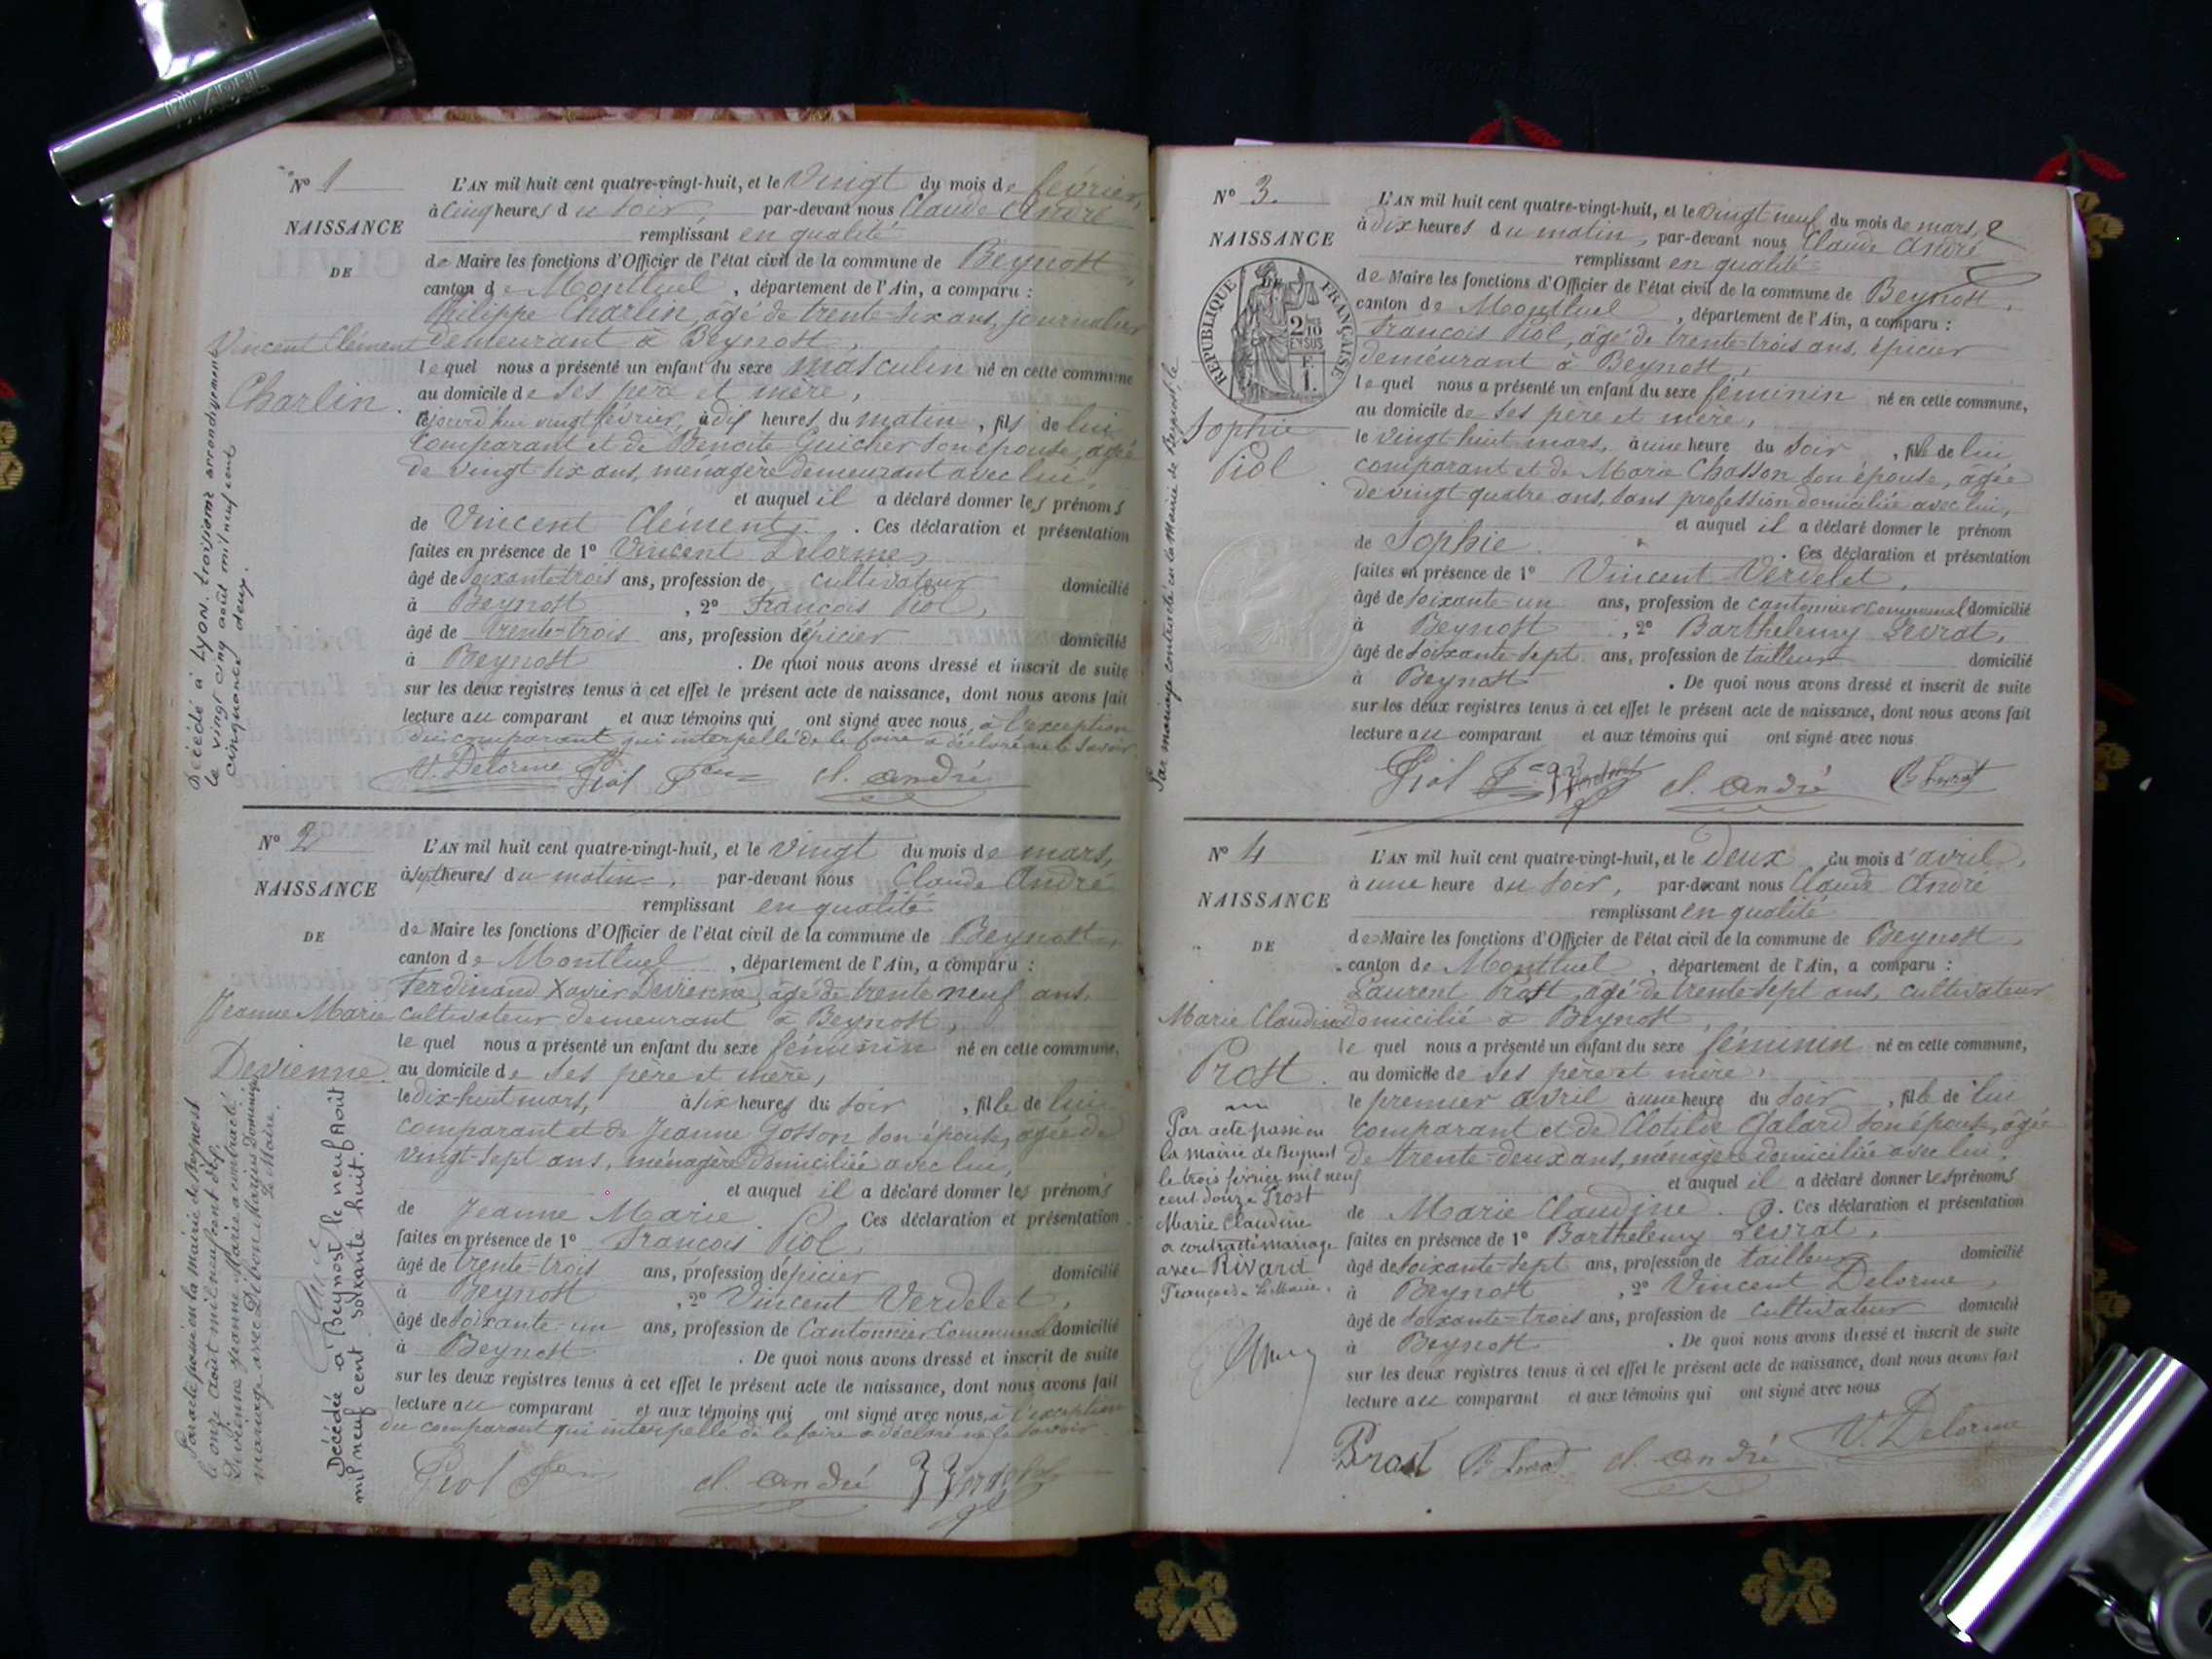 N° 1
NAISSANCE
DE
Vincent Clément
Charlin.
Décédé à Lyon, troisième arrondissement
le vingt cinq août mil neuf cent
cinquante deux.
L'AN mil huit cent quatre-vingt-huit, et le vingt du mois de février,
à cinq heures du soir, par-devant nous Claude André
remplissant en qualité
de Maire les fonctions d'Officier de l'état civil de la commune de Beynost,
canton de Montluel, département de l'Ain, a comparu :
Philippe Charlin, âgé de trente-six ans, journalier
demeurant à Beynost,
lequel nous a présenté un enfant du sexe masculin né en cette commune
au domicile de ses père et mère,
cejourd'hui vingt février, à dix heures du matin, fils de lui
comparant et de Benoite Guicher son épouse, agée
de vingt six ans, ménagère demeurant avec lui,
et auquel il a déclaré donner les prénoms
de Vincent Clément. Ces déclaration et présentation
faites en présence de 1° Vincent Delorme,
âgé de soixante-trois ans, profession de cultivateur domicilié
à Beynost, 2° François Piol,
âgé de trente-trois ans, profession d'épicier domicilié
à Beynost. De quoi nous avons dressé et inscrit de suite
sur les deux registres tenus à cet effet le présent acte de naissance, dont nous avons fait
lecture au comparant et aux témoins qui ont signé avec nous, à l'exception
du comparant qui interpellé de le faire a déclaré ne le savoir
V. Delorme Piol Fçois cl. andré
N° 2
NAISSANCE
DE
Jeanne Marie
Devienne.
Par acte passé en la mairie de Beynost
le onze août mil neuf cent dix
Devienne Jeanne Marie a contracté
mariage avec Débon Marius Dominique
Le Maire.
Décédée à Beynost le neuf Août
mil neuf cent soixante huit.
L'AN mil huit cent quatre-vingt-huit, et le vingt du mois de mars,
à sept heures du matin, par-devant nous Claude André
remplissant en qualité
de Maire les fonctions d'Officier de l'état civil de la commune de Beynost,
canton de Montluel, département de l'Ain, a comparu :
Ferdinand Xavier Devienne, âgé de trente neuf ans,
cultivateur demeurant à Beynost,
lequel nous a présenté un enfant du sexe féminin né en cette commune,
au domicile de ses père et mère,
le dix-huit mars, à six heures du soir, fille de lui
comparant et de Jeanne Gosson son épouse, agée de
vingt-sept ans, ménagère domiciliée avec lui,
et auquel il a déclaré donner les prénoms
de Jeanne Marie. Ces déclaration et présentation
faites en présence de 1° François Piol,
âgé de trente-trois ans, profession d'épicier domicilié
à Beynost, 2° Vincent Verdelet,
âgé de soixante-un ans, profession de Cantonnier communal domicilié
à Beynost. De quoi nous avons dressé et inscrit de suite
sur les deux registres tenus à cet effet le présent acte de naissance, dont nous avons fait
lecture au comparant et aux témoins qui ont signé avec nous, à l'exception
du comparant qui interpellé de le faire a déclaré ne le savoir.
Piol cl. andré Verdelet
N° 3.
NAISSANCE
RÉPUBLIQUE FRANÇAISE
Sophie
Piol.
Par mariage contracté en la Mairie de Beynost, le
L'AN mil huit cent quatre-vingt-huit, et le vingt neuf du mois de mars,
à dix heures du matin, par-devant nous Claude André
remplissant en qualité
de Maire les fonctions d'Officier de l'état civil de la commune de Beynost,
canton de Montluel, département de l'Ain, a comparu :
François Piol, âgé de trente-trois ans, épicier
demeurant à Beynost,
lequel nous a présenté un enfant du sexe féminin né en cette commune,
au domicile de ses père et mère,
le vingt huit mars, à une heure du soir, fille de lui
comparant et de Marie Chasson son épouse, âgée
de vingt quatre ans, sans profession domiciliée avec lui,
et auquel il a déclaré donner le prénom
de Sophie. Ces déclaration et présentation
faites en présence de 1° Vincent Verdelet,
âgé de soixante-un ans, profession de cantonnier communal domicilié
à Beynost, 2° Barthelemy Levrat,
âgé de soixante-sept ans, profession de tailleur domicilié
à Beynost. De quoi nous avons dressé et inscrit de suite
sur les deux registres tenus à cet effet le présent acte de naissance, dont nous avons fait
lecture au comparant et aux témoins qui ont signé avec nous
Piol Verdelet cl. andré B Levrat
N° 4
NAISSANCE
DE
Marie Claudine
Prost.
Par acte passé en
la mairie de Beynost
le trois février mil neuf
cent douze Prost
Marie Claudine
a contracté mariage
avec Rivard
François. Le Maire.
L'AN mil huit cent quatre-vingt-huit, et le deux du mois d'avril,
à une heure du soir, par-devant nous Claude André
remplissant en qualité
de Maire les fonctions d'Officier de l'état civil de la commune de Beynost,
canton de Montluel, département de l'Ain, a comparu :
Laurent Prost, âgé de trente-sept ans, cultivateur
domicilié à Beynost,
le quel nous a présenté un enfant du sexe féminin né en cette commune,
au domicile de ses père et mère,
le premier avril à une heure du soir, fille de lui
comparant et de Clotilde Galard son épouse, âgée
de trente-deux ans, ménagère domiciliée avec lui,
et auquel il a déclaré donner les prénoms
de Marie Claudine. Ces déclaration et présentation
faites en présence de 1° Barthelemy Levrat,
âgé de soixante-sept ans, profession de tailleur domicilié
à Beynost, 2° Vincent Delorme,
âgé de soixante-trois ans, profession de cultivateur domicilié
à Beynost. De quoi nous avons dressé et inscrit de suite
sur les deux registres tenus à cet effet le présent acte de naissance, dont nous avons fait
lecture au comparant et aux témoins qui ont signé avec nous
Prost B Levrat cl. andré V. Delorme